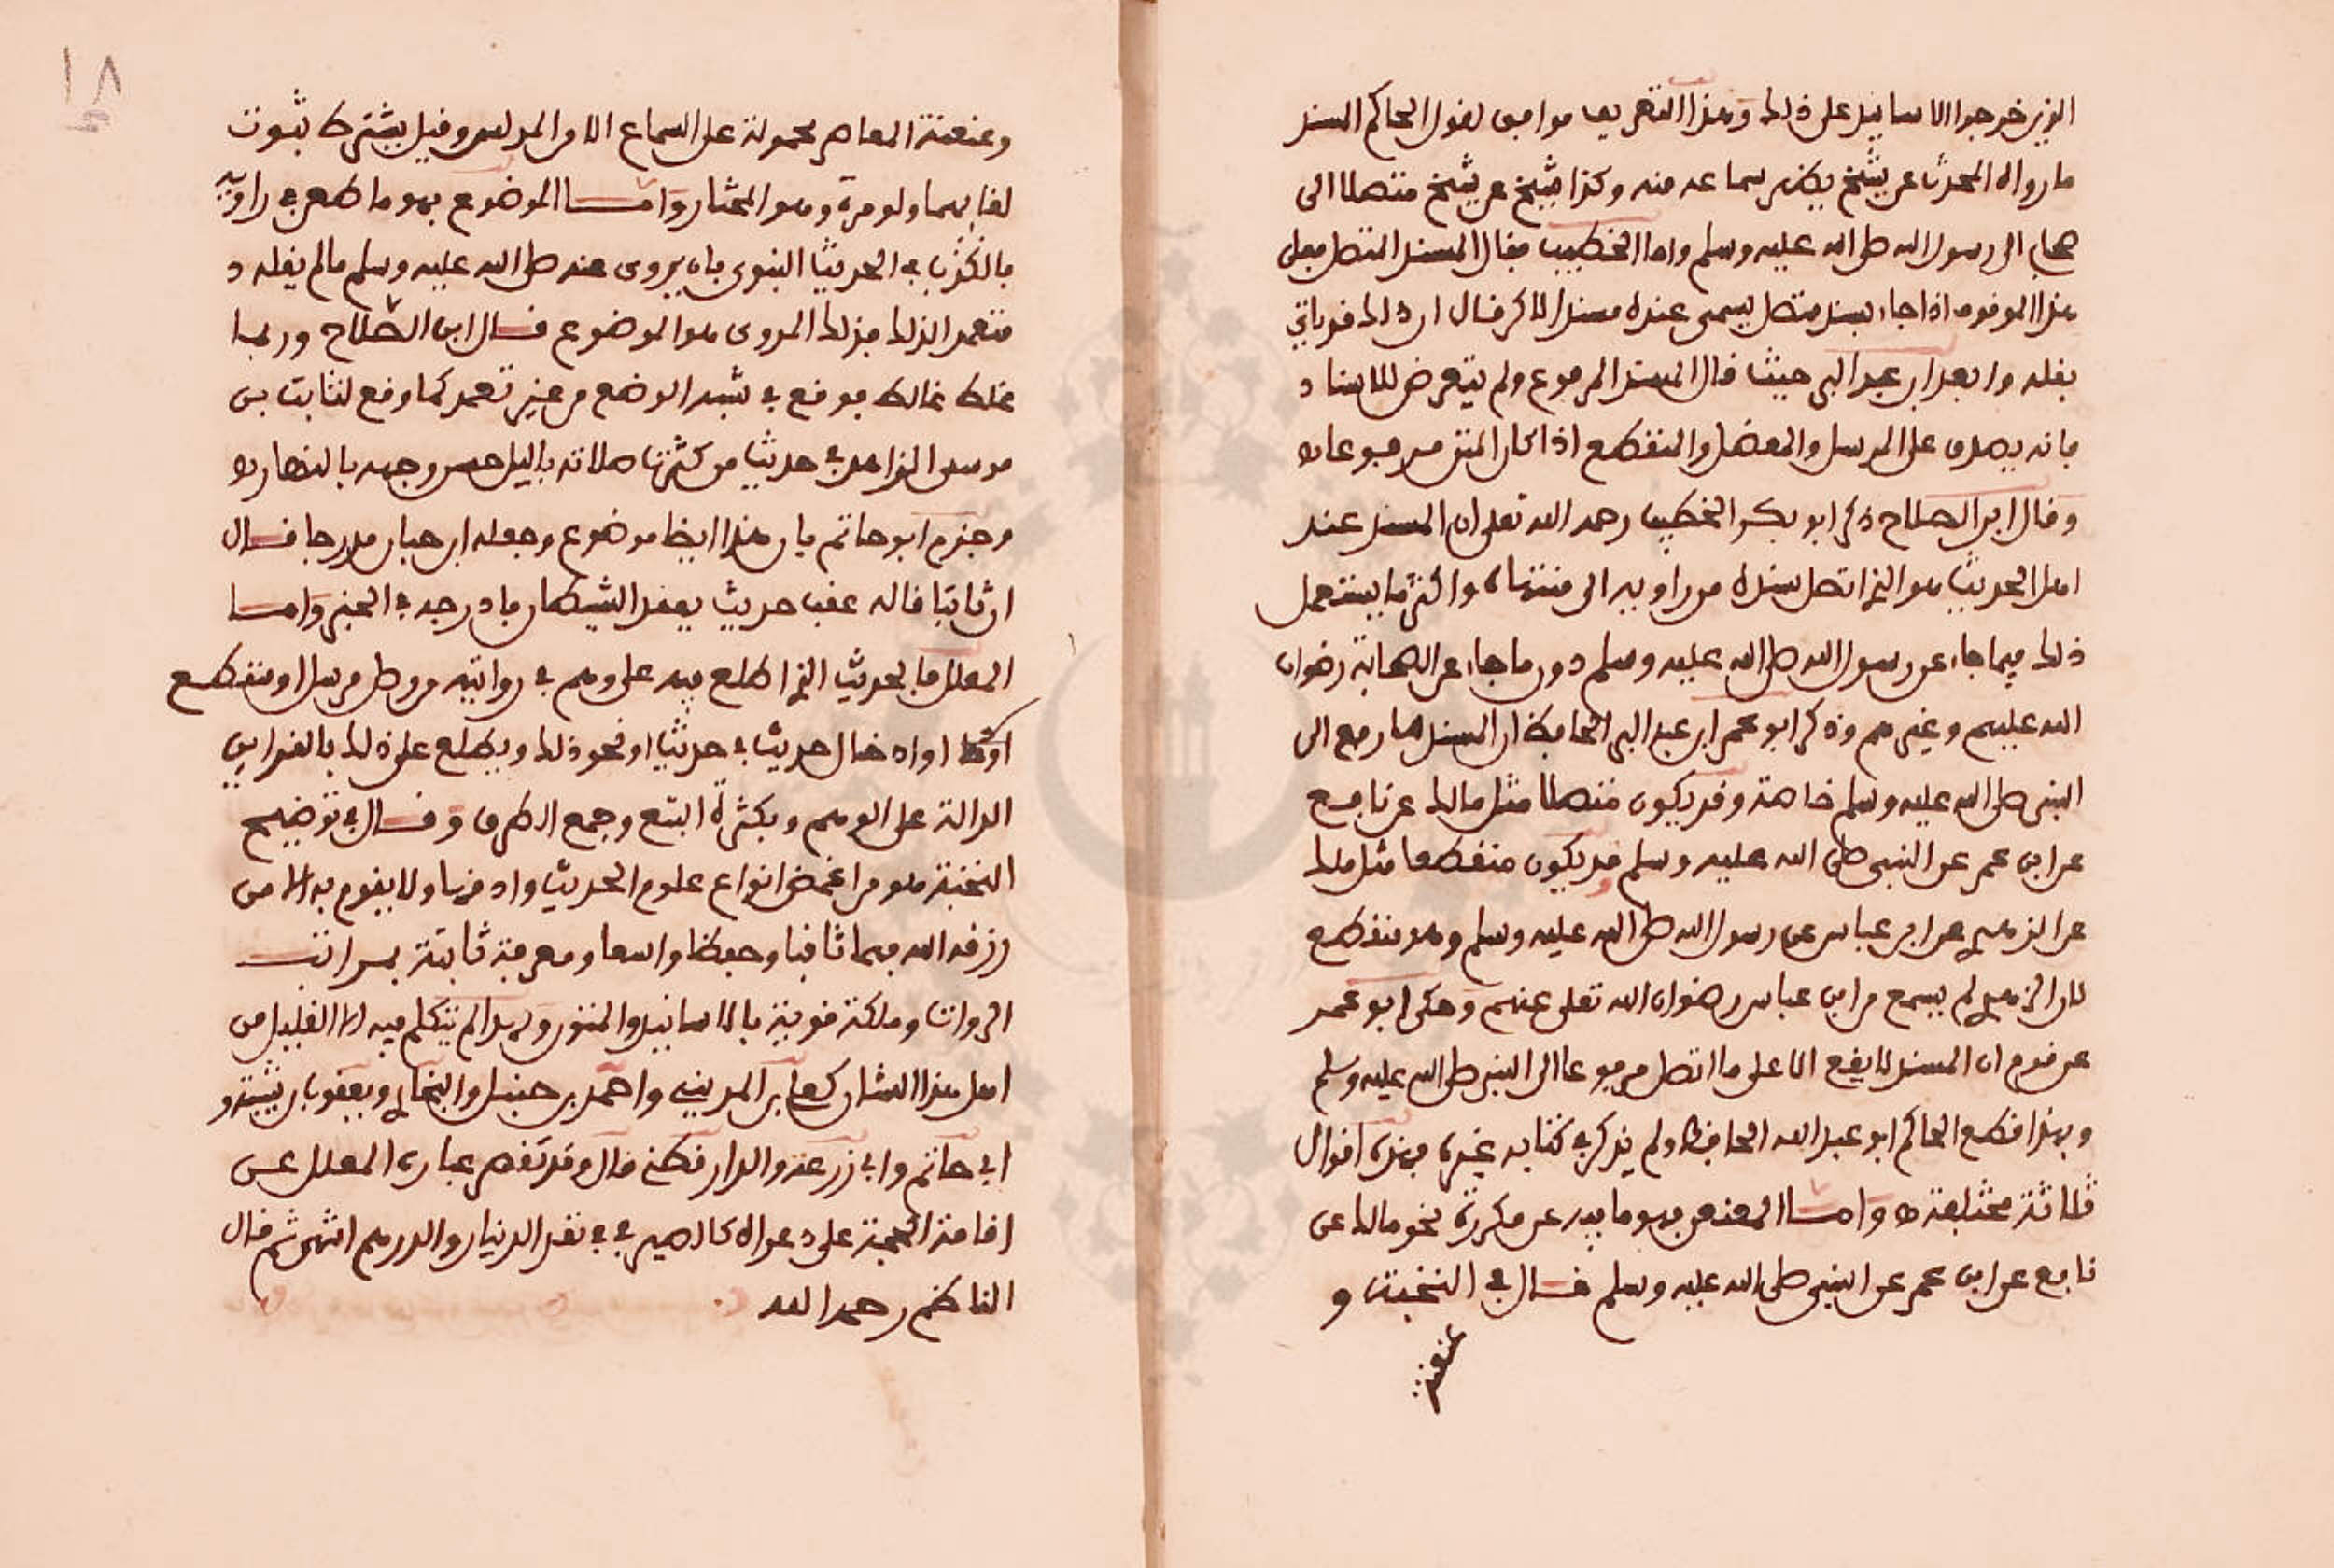 الذين خرجوا الاسانيد على ذلك وهذا التعريف موافق لقول الحاكم المسند
ما رواه المحدث عن شيخ يظهر سماعه منه وكذا شيخ عن شيخ متصلا الى
صحابي الى رسول الله صلى الله عليه وسلم واما الخطيب فقال المسند المتصل فعلى
هذا الموقوف اذا جاء بسند متصل يسمى عنده مسندا لاكن قال ان ذلك قد ياتي
بقلة وابعد ابن عبد البر حيث قال المسند المرفوع ولم يتعرض للاسناد
فانه يصدق على المرسل والمعضل والمنقطع اذا كان المتن مرفوعا
وقال ابن الصلاح ذكر ابو بكر الخطيب رحمه الله تعلى ان المسند عند
اهل الحديث هو الذي اتصل سنده من راويه الى منتهاه واكثر ما يستعمل
ذلك فيما جاء عن رسول الله صلى الله عليه وسلم دون ما جاء عن الصحابة رضوان
الله عليهم وغيرهم وذكر ابو عمر ابن عبد البر الحافظ ان المسند ما رفع الى
النبي صلى الله عليه وسلم خاصة وقد يكون متصلا مثل مالك عن نافع
عن ابن عمر عن النبي صلى الله عليه وسلم قد يكون منقطعا مثل ملك
عن الزهري عن ابن عباس عن رسول الله صلى الله عليه وسلم وهو منقطع
لان الزهري لم يسمع من ابن عباس رضوان الله تعلى عنهم وحكى ابو عمر
عن قوم ان المسند لا يقع الا على ما اتصل مرفوعا الى النبي صلى الله عليه وسلم
وبهذا قطع الحاكم ابو عبد الله الحافظ ولم يذكر في كتابه غيره فهذه اقوال
ثلاثة مختلفة واما المعنعن فهو ما فيه عن مكررة نحو مالك عن
نافع عن ابن عمر عن النبي صلى الله عليه وسلم قال في النخبة و
عنعنة
١٨
وعنعنة المعاصر محمولة على السماع الا من المدلس وقيل يشترط ثبوت
لقايهما ولو مرة وهو المختار واما الموضوع فهو ما طعن في راويه
بالكذب في الحديث النبوي بان يروى عنه صلى الله عليه وسلم ما لم يقله
متعمدا لذلك فذلك المروى هو الموضوع قال ابن الصلاح وربما
غلط غالط فوقع في شبه الوضع من غير تعمد كما وقع لثابت بن
موسى الزاهد في حديث من كثرت صلاته باليل حسن وجهه بالنهار
وجزم ابو حاتم بان هذا ايضا موضوع وجعله ابن حبان مدرجا قال
ان ثابتا قاله عقب حديث يعقد الشيطان فادرجه في الخبر واما
المعلل فالحديث الذي اطلع فيه على وهم في روايته من وصل مرسل او منقطع
او ادخال حديث في حديث او نحو ذلك ويطلع على ذلك بالقراين
الدالة على الوهم وبكثرة التتبع وجمع الطرق وقال في توضيح
النخبة هو من اغمض انواع علوم الحديث وادقها ولا يقوم به الا من
رزقه الله فهما ثاقبا وحفظا واسعا ومعرفة ثابتة بمراتب
الروات وملكة قوية بالاسانيد والمتون ولهذا لم يتكلم فيه الا القليل من
اهل هذا الشان كعلي بن المديني واحمد بن حنبل والبخاري ويعقوب بن شيبة و
ابي حاتم وابي زرعة والدارقطني قال وقد تقصر عبارة المعلل عن
اقامة الحجة على دعواه كالصيرفي في نقد الدينار والدرهم انتهى ثم قال
الناظم رحمه الله